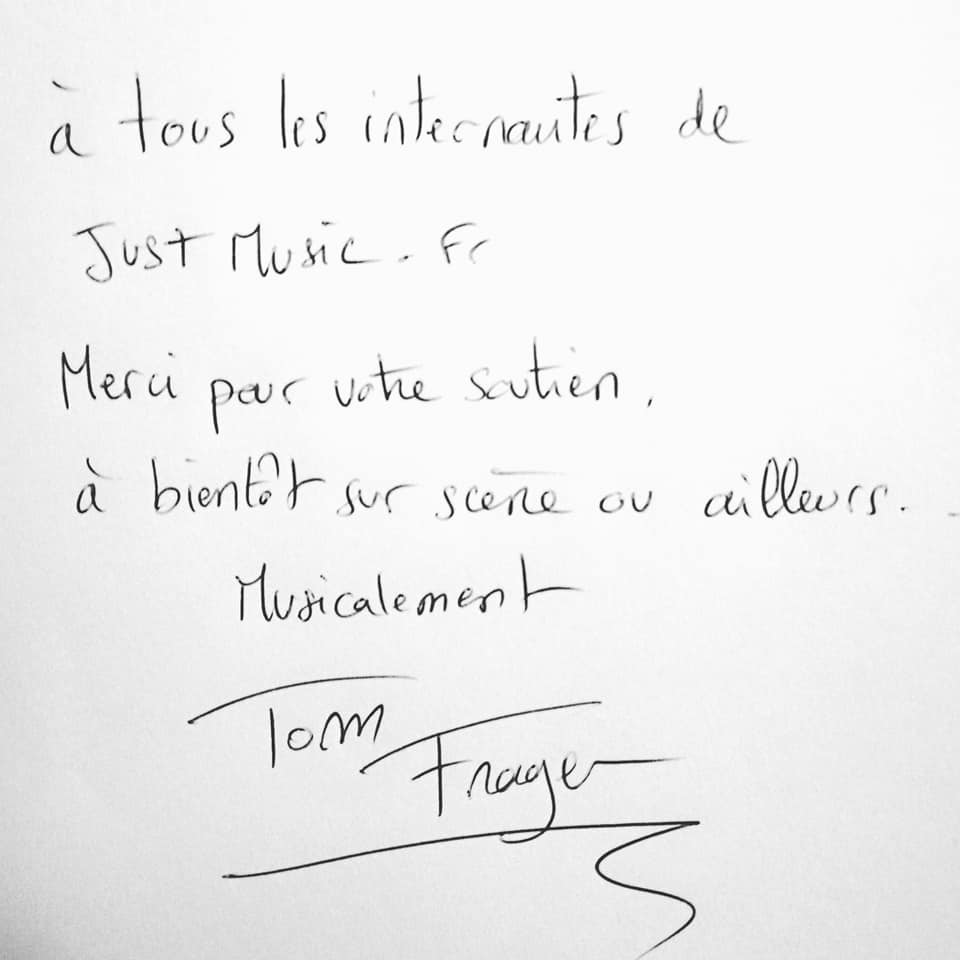 à tous les internautes de
Just Music. Fr
Merci pour votre soutien,
à bientôt sur scène ou ailleurs.
Musicalement
Tom
Frager